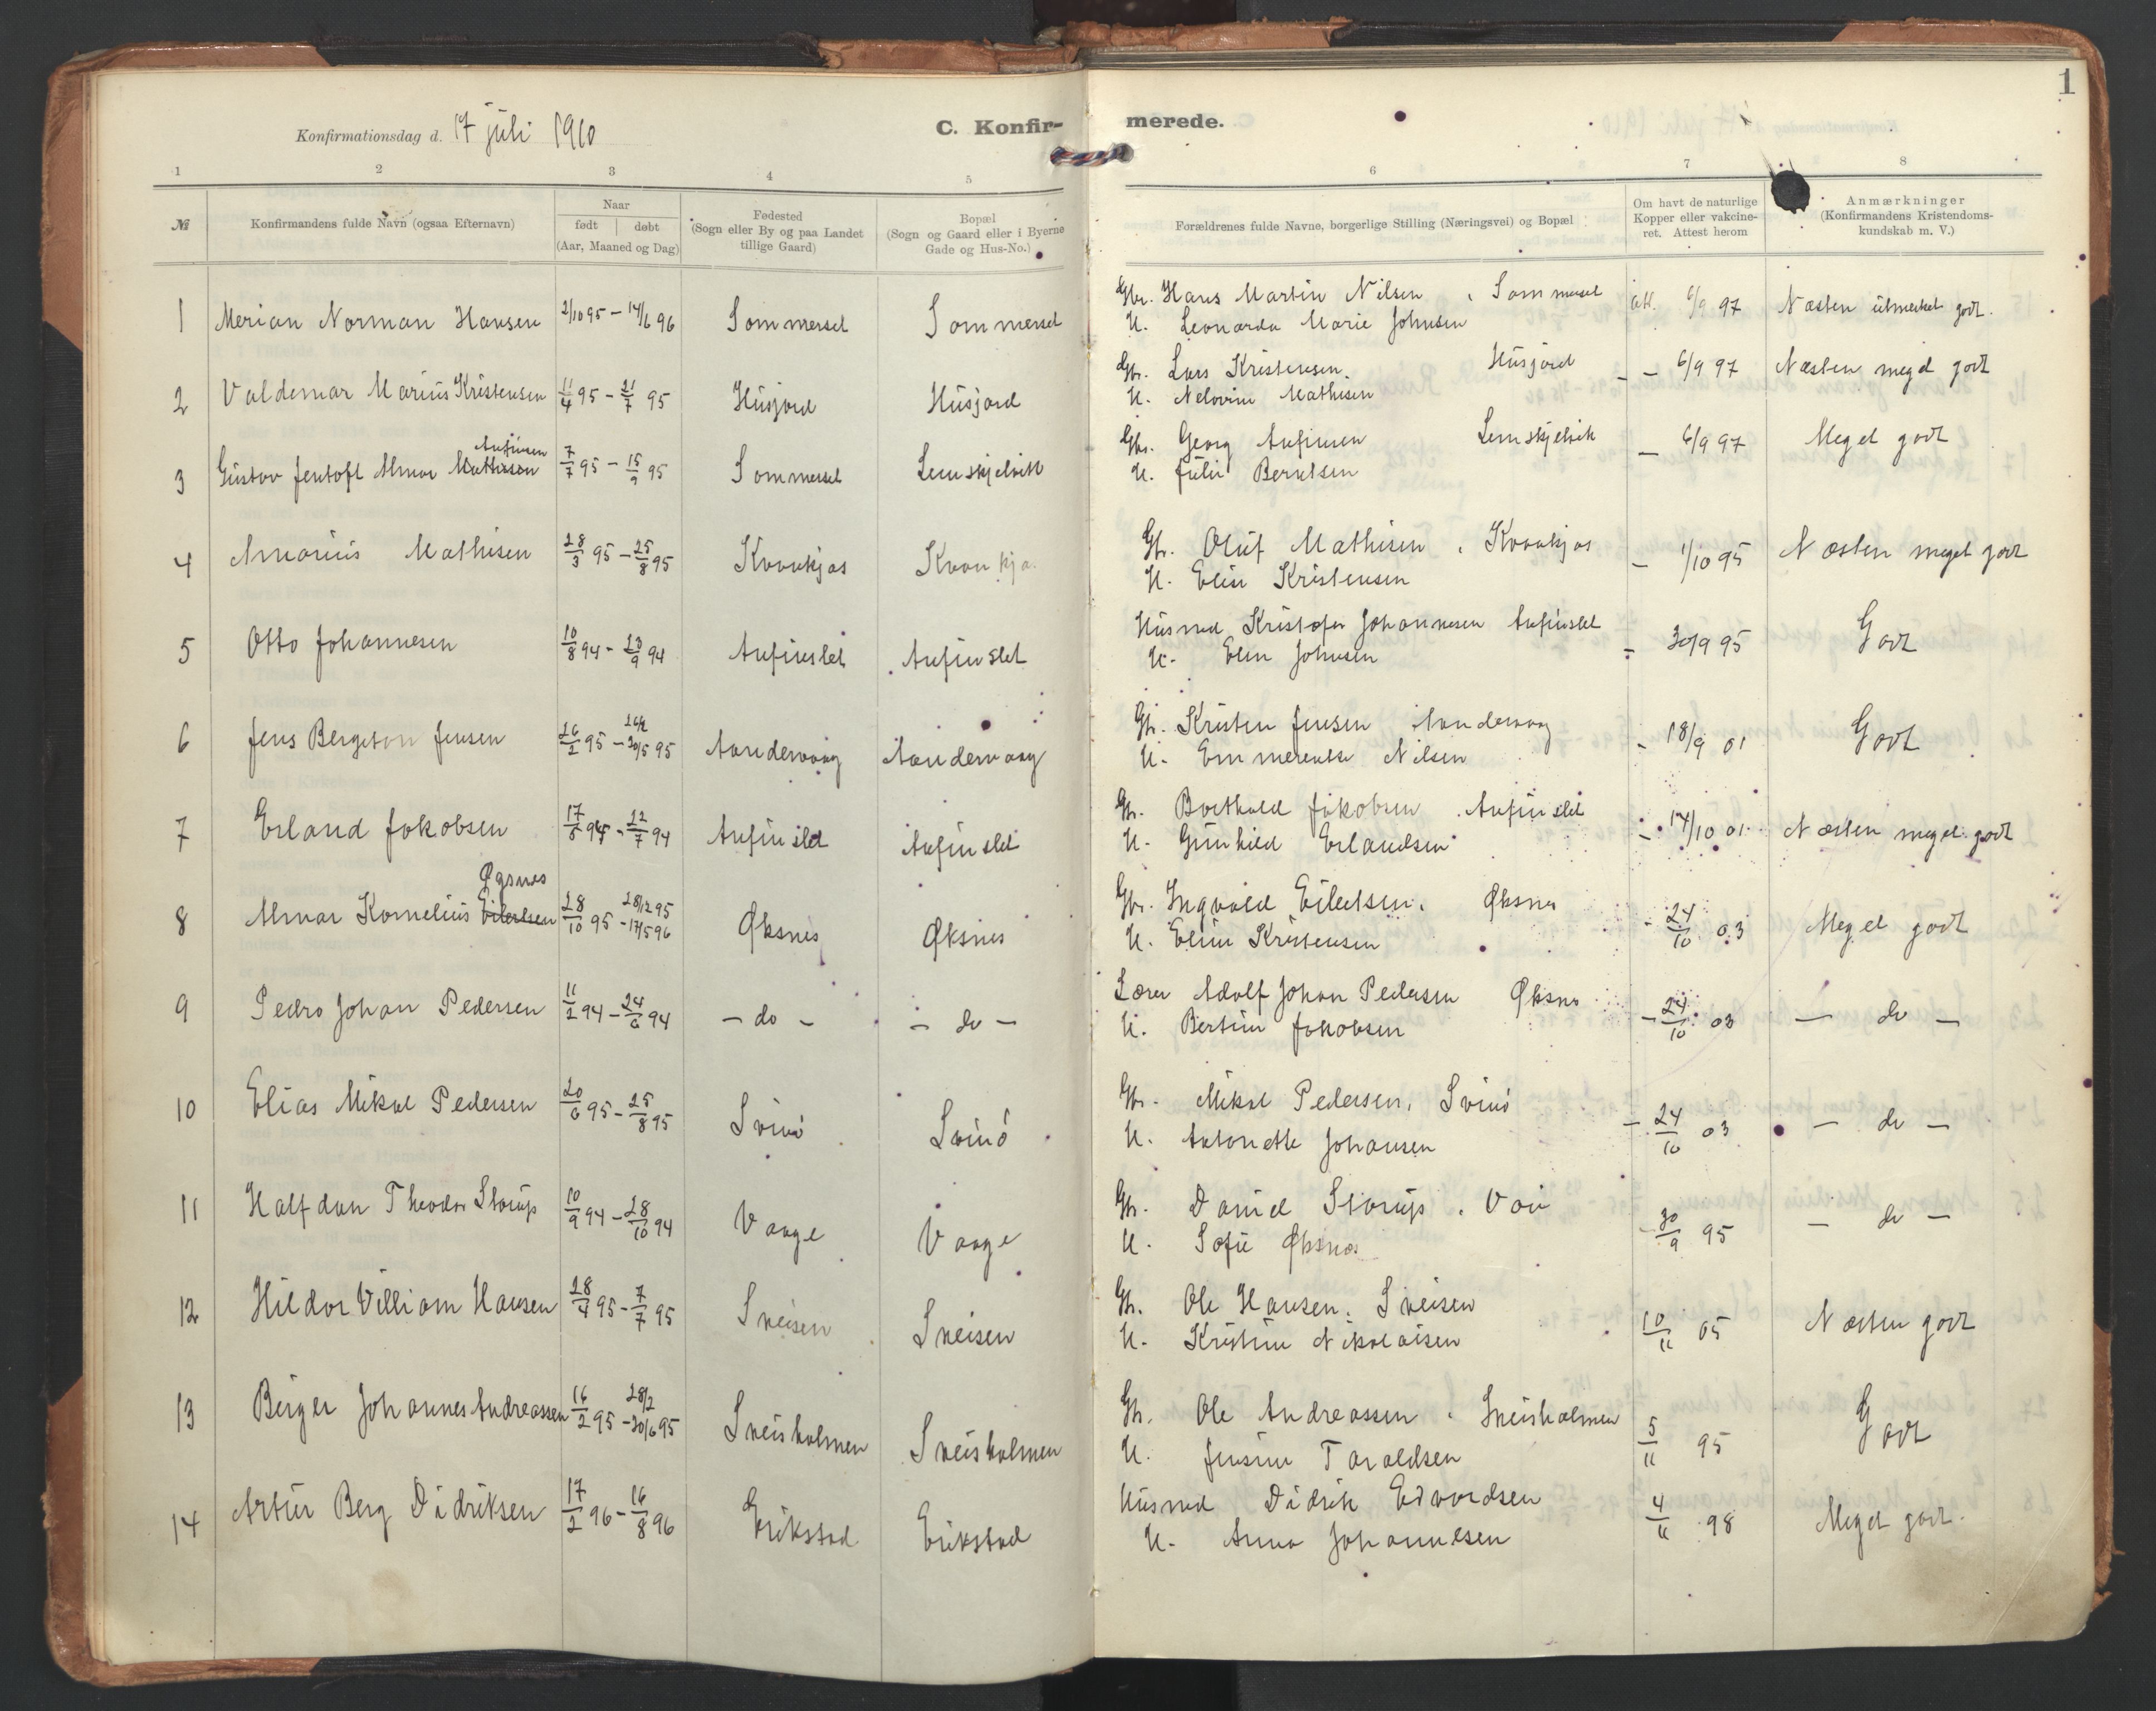 1
Konfirmationsdag d. 17 juli 1910
C. Konfir-
merede.
1 2 3 4 5 6 7 8
№
Konfirmandens fulde Navn (ogsaa Efternavn)
Naar
født | døbt
(Aar, Maaned og Dag)
Fødested
(Sogn eller By og paa Landet
tillige Gaard)
Bopæl
(Sogn og Gaard eller i Byerne
Gade og Hus-No.)
Forældrenes fulde Navne, borgerlige Stilling (Næringsvei) og Bopæl
Om havt de naturlige
Kopper eller vakcine-
ret. Attest herom
Anmærkninger
(Konfirmandens Kristendoms-
kundskab m. V.)
1 Merian Norman Hansen 2/10 95 – 14/6 96 Sommersel Sommersel
Gbr. Hans Martin Nilsen, Sommersel att. 6/9 97 Næsten utmerket godt.
H. Leonarda Marie Johnsen
2 Valdemar Marius Kristensen 11/4 95 – 21/7 95 Husjord Husjord
Gbr. Lars Kristensen. Husjord – 6/9 97 Næsten meget godt
H. Nelovine Mathisen
Anfinsen
3 Gustav Jentoft Almar Mathisen 7/7 95 – 15/9 95 Sommersel Lemskjelvik
Gbr. Georg Anfinsen Lemskjelvik – 6/9 97 Meget godt
H. Julie Berntsen
4 Amarius Mathisen 28/3 95 – 25/8 95 Kvankjos Kvankjo
Gb. Oluf Mathisen, Kvankjos – 1/10 95 Næsten meget godt
H. Elise Kristensen
5 Otto Johannesen 10/8 94 – 23/9 94 Anfinslet Anfinslet
Husmd Kristofer Johannesen Anfinslet – 30/9 95 Godt
H. Elen Johnsen
26/2
6 Jens Bergeton Jensen 26/2 95 – 30/5 95 Aandervaag Aandervaag
Gb. Kristen Jensen Aandervaag – 18/9 01 Godt
H. Emmerentse Nilsen
7 Erland Jakobsen 17/5 94 – 22/7 94 Anfinslet Anfinslet
Gb. Borthold Jakobsen. Anfinslet – 14/10 01 Næsten meget godt
H. Gunhild Erlandsen
Øgsnes
28/12 95
8 Almar Kornelius Eilertsen 28/10 95 – 17/5 96 Øksnes Øksnes
Gbr. Ingvald Eilertsen. Øksnes – 24/10 03 Meget godt
H. Eline Kristensen
9 Pedro Johan Pedersen 11/2 94 – 24/6 94 – do – – do –
Lærer Adolf Johan Pedersen Øksnes – 24/10 03 – do –
H. Bertine Jakobsen
10 Elias Mikal Pedersen 20/6 95 – 25/8 95 Svinø Svinø
Gb. Mikal Pedersen, Svinø – 24/10 03 – do –
H. Antonette Johansen
11 Halfdan Theodor Storup 10/9 94 – 28/10 94 Vaage Vaage
Gb. Daniel Storup.
H. Sofie Øksnes – 30/9 95 – do –
12 Hildor Villiam Hansen 28/4 95 – 7/7 95 Sneisen Sneisen
Gb. Ole Hansen. Sneisen 10/11 05 Næsten godt
H. Kristine Nikolaisen
28/2
13 Birger Johannes Andreassen 16/2 95 – 30/6 95 Sneisholmen Sneisholmen
Gb. Ole Andreassen. Sneisholmen 5/11 95 Godt
H. Jensine Taraldsen
14 Artur Berg Didriksen 17/2 96 – 16/8 96 Erikstad Erikstad
Husmd Didrik Edvardsen 4/11 98 Meget godt.
H. Anna Johannesen